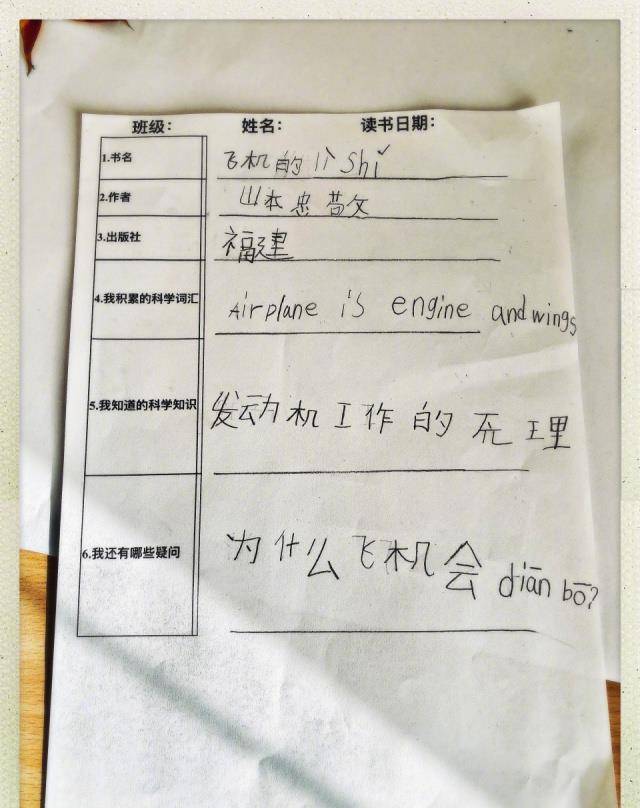 班级: 姓名: 读书日期:
1.书名 飞机的 shì
2.作者 山本忠敬文
3.出版社 福建
4.我积累的科学词汇 Airplane is engine and wings
5.我知道的科学知识 发动机工作的 理
6.我还有哪些疑问 为什么飞机会diān bō?